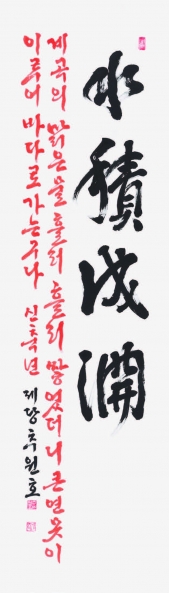 水積成淵
계곡의 맑은물 흘러 흘러 쌓였더니 큰연못이
이루어 바다로 가는구나 신축년 제당 추원호